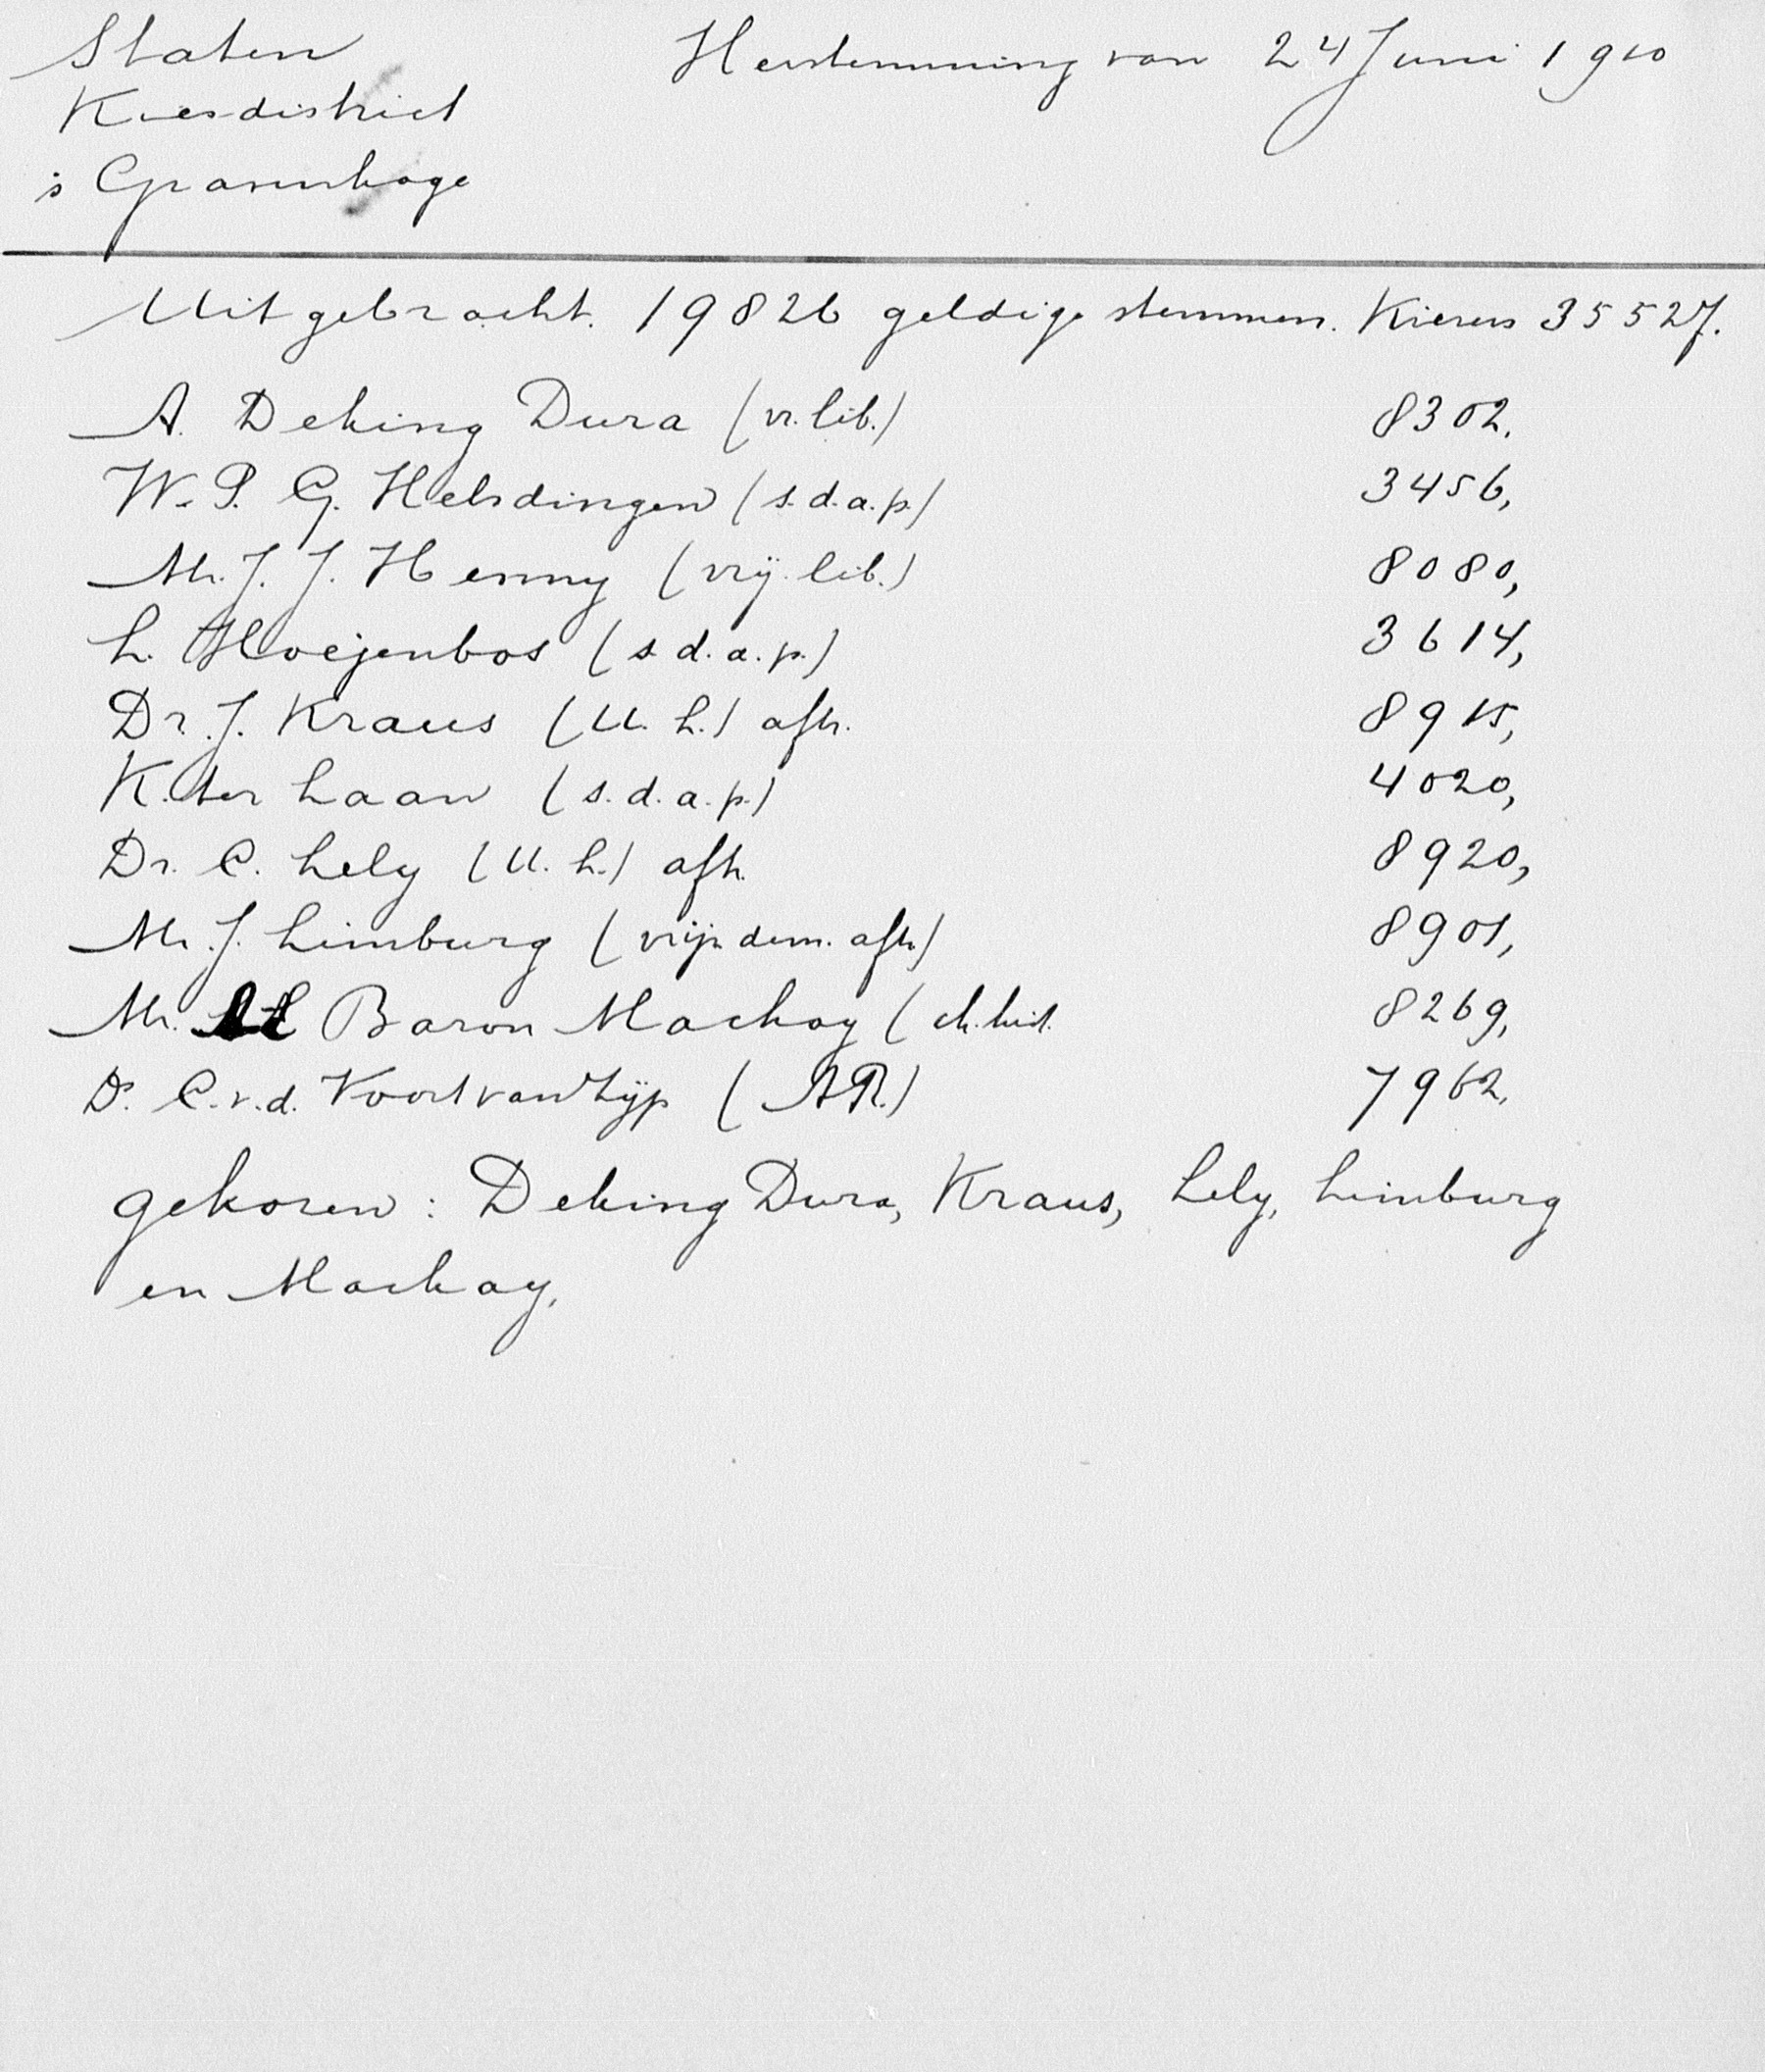 Staten
Herstemming van 24 Juni 1910
Kiesdistrict
's Gravenhage
Uitgebracht. 19826 geldige stemmen. Kiezers 35527.
A. Deking Dura (vr. lib.) 8302.
W. P. G. Helsdingen (s.d.a.p.) 3456,
Mr. J. J. Henny (vrij. lib.) 8080,
L. Hoejenbos (s.d.a.p.) 3614,
Dr. J. Kraus (U. L.) aftr. 8915,
K. ter Laan (s.d.a.p.) 4020,
Dr. C. Lely (U. L.) aftr. 8920,
Mr. J. Limburg (vrijz. dem. aftr.) 8901,
Mr. Baron Mackay (ch. hist. 8269,
Ds. C. v. d. Voort van Zijp (AR.) 7962.
gekozen: Deking Dura, Kraus, Lely, Limburg
en Mackay.